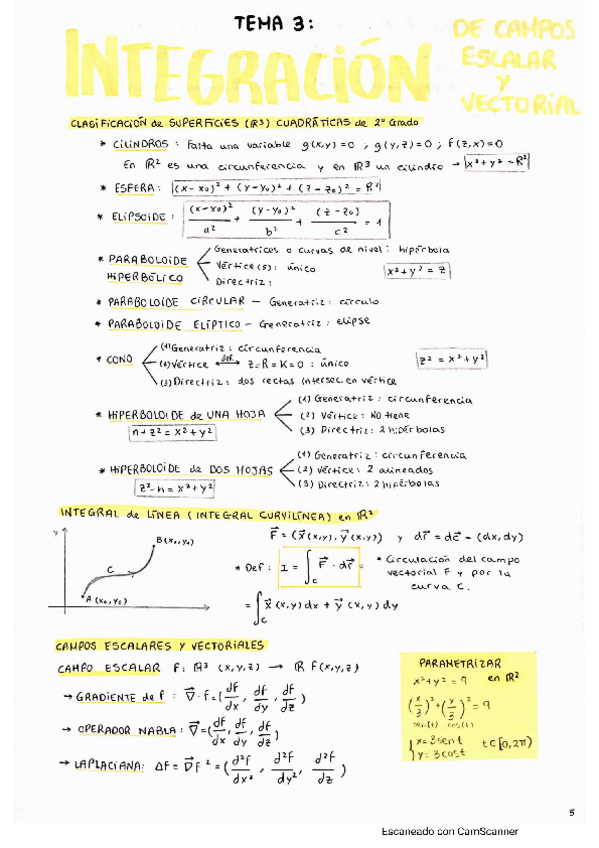 TEMA 3:
INTEGRACIÓN
DE CAMPOS
ESCALAR
Y
VECTORIAL
CLASIFICACIÓN de SUPERFICIES (ℝ³) CUADRÁTICAS de 2º Grado
* CILINDROS: Falta una variable g(x,y)=0 , g(y,z)=0 ; f(z,x)=0
En ℝ² es una circunferencia y en ℝ³ un cilindro → x²+y²=R²
* ESFERA: (x-x₀)² + (y-y₀)² + (z-z₀)² = R²
* ELIPSOIDE: (x-x₀)²/a² + (y-y₀)²/b² + (z-z₀)/c² = 1
* PARABOLOIDE HIPERBÓLICO
Generatrices o curvas de nivel: hipérbola
Vértice(s): único
Directriz:
x²+y²=z
* PARABOLOIDE CIRCULAR — Generatriz: círculo
* PARABOLOIDE ELÍPTICO — Generatriz: elipse
* CONO
(1) Generatriz: circunferencia
(2) Vértice ⟷ def. z=R=K=0 : único
(3) Directriz: dos rectas intersec. en vértice
z² = x²+y²
* HIPERBOLOIDE de UNA HOJA
n+z² = x²+y²
(1) Generatriz: circunferencia
(2) Vértice: NO tiene
(3) Directriz: 2 hipérbolas
* HIPERBOLOIDE de DOS HOJAS
z²-n = x²+y²
(1) Generatriz: circunferencia
(2) Vértice: 2 alineados
(3) Directriz: 2 hipérbolas
INTEGRAL de LÍNEA (INTEGRAL CURVILÍNEA) en ℝ²
y
B(x₀,y₀)
C
A(x₀,y₀)
F⃗ = (x⃗(x,y), y⃗(x,y)) y dr⃗ = dc⃗ - (dx,dy)
* Def: I = ∫_C F⃗ · dr⃗ =
* Circulación del campo
vectorial F y por la
curva C.
= ∫_C x⃗(x,y)dx + y⃗(x,y)dy
CAMPOS ESCALARES Y VECTORIALES
CAMPO ESCALAR f: ℝ³ (x,y,z) → ℝ F(x,y,z)
→ GRADIENTE de f : ∇⃗·f = (df/dx, df/dy, df/dz)
→ OPERADOR NABLA: ∇⃗ = (df/dx, df/dy, df/dz)
→ LAPLACIANA: Δf = ∇⃗f² = (d²f/dx², d²f/dy², d²f/dz)
PARAMETRIZAR
x²+y² = 9 en ℝ²
(x/3)² + (y/3)² = 9
sen(t) cos(t)
x = 3sent
y = 3cost
t∈[0,2π)
5
Escaneado con CamScanner